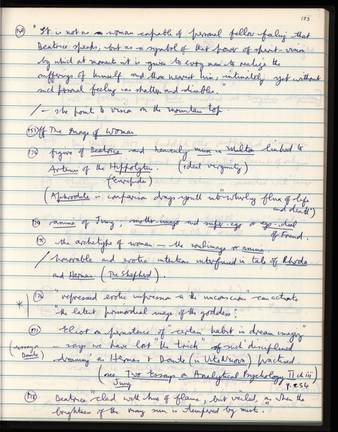 123
"It is not as a woman capable of personal fellow-feeling that
Beatrice speaks, but as a symbol of that power of spirit-vision
by which at moments it is given to every man to realize the
sufferings of himself and those nearest him, intimately yet without
such personal feeling as shatters and disables."
/ – she points to vision on the mountain top.
ff The Image of Woman
figure of Beatrice and heavenly muse in Milton linked to
Artemis of the Hippolytus. (ideal virginity)
(Euripides)
(Aphrodite – comparison drags youth into "whirling flux of life
and death")
anima of Jung, mother-image and super-ego or ego-ideal
of Freud.
the archetype of woman – the soul-image or anima.
/ honorable and erotic intention interfused in tale of Rhoda
and Hermas (The Shepherd).
* "repressed erotic impression in the unconscious" can activate
"the latent primordial image of the goddess".
Eliot on persistence of certain habit in dream imagery
– says we have lost "the trick" of such disciplined
dreaming as Hermas & Dante (in Vita Nuova) practised.
Dante
(see Two Essays on Analytical Psychology II ch iii
Jung p. 254
Beatrice "clad with hue of flame, but veiled, as when the
brightness of the may sun is tempered by mist.